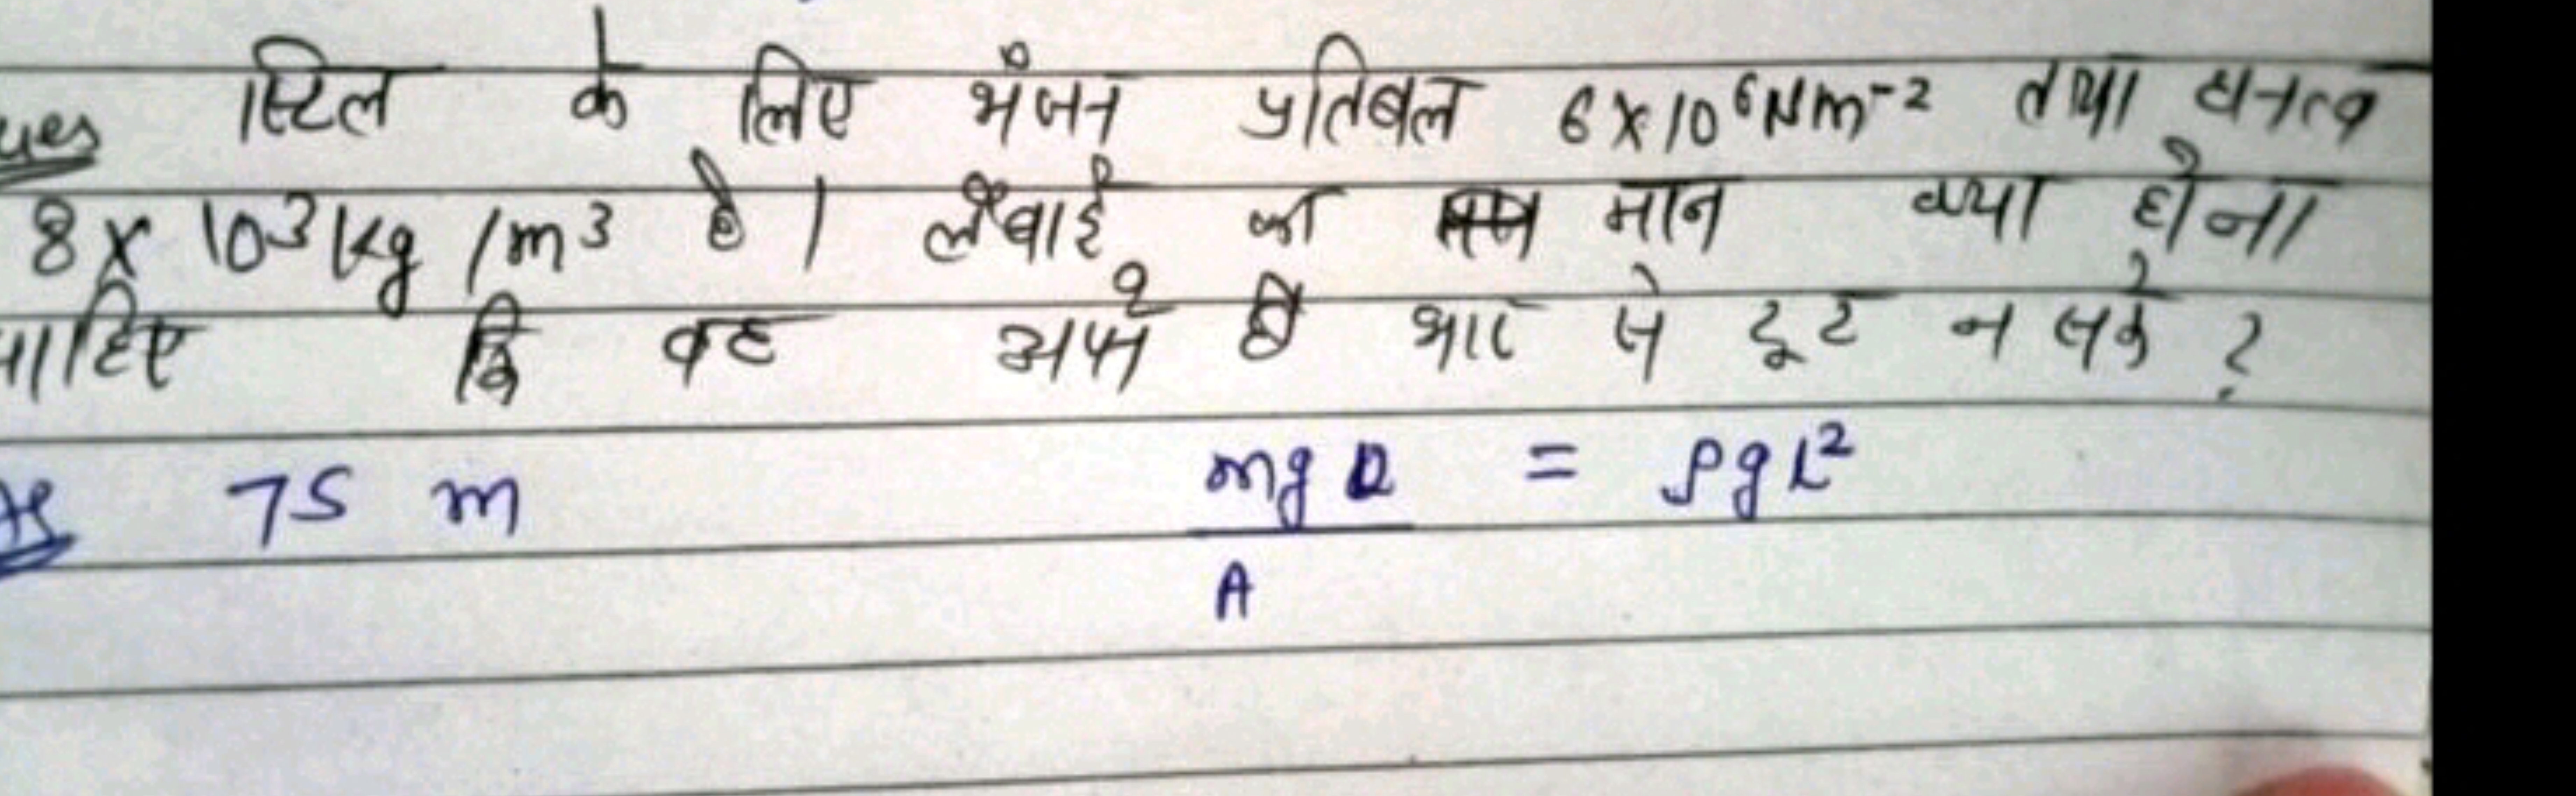 ues स्टिल के लिए भंजन प्रतिबल 6×10⁶Nm⁻² तथा घनत्व
8× 10³kg /m³ है। लंबाई का मान क्या होना
चाहिए कि वह अपने ही भार से टूट न सके ?
75 m mg = ρgL²
A